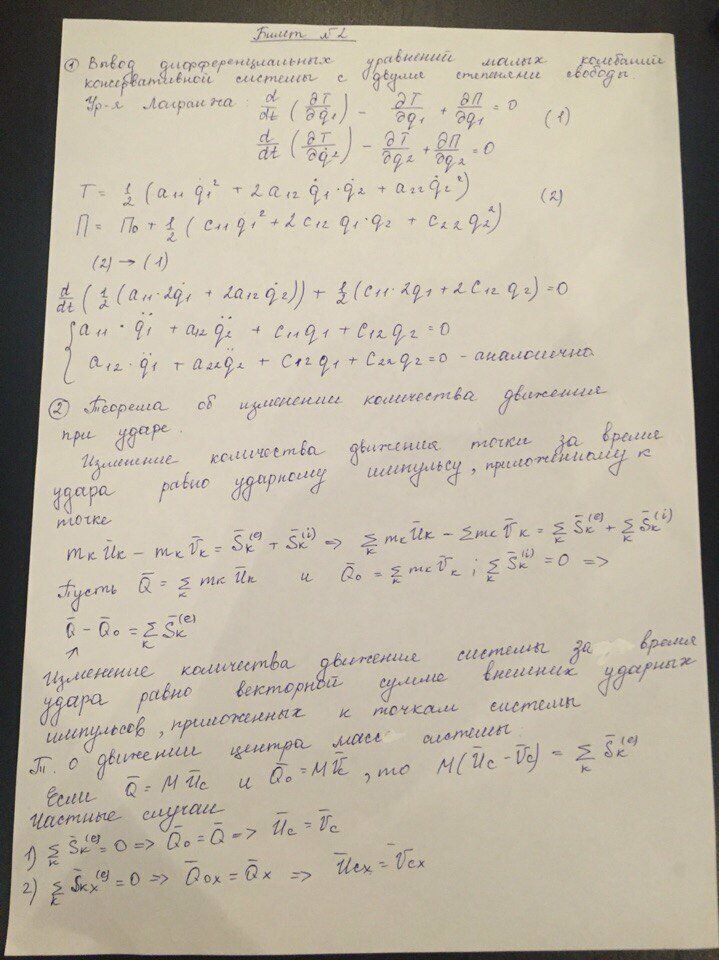 Билет №2
① Вывод дифференциальных уравнений малых колебаний
консервативной системы с двумя степенями свободы.
Ур-я Лагранжа: d/dt (∂T/∂q̇₁) - ∂T/∂q₁ + ∂П/∂q₁ = 0 (1)
d/dt (∂T/∂q̇₂) - ∂T/∂q₂ + ∂П/∂q₂ = 0
T = 1/2 (a₁₁ q̇₁² + 2a₁₂ q̇₁·q̇₂ + a₂₂ q̇₂²) (2)
П = П₀ + 1/2 (c₁₁ q₁² + 2c₁₂ q₁·q₂ + c₂₂ q₂²)
(2) → (1)
d/dt (1/2 (a₁₁·2q̇₁ + 2a₁₂ q̇₂)) + 1/2 (c₁₁·2q₁ + 2c₁₂ q₂) = 0
{ a₁₁·q̈₁ + a₁₂q̈₂ + c₁₁q₁ + c₁₂q₂ = 0
a₁₂·q̈₁ + a₂₂q̈₂ + c₁₂q₁ + c₂₂q₂ = 0 - аналогично
② Теорема об изменении количества движения
при ударе.
Изменение количества движения точки за время
удара равно ударному импульсу, приложенному к
точке
mₖŪₖ - mₖV̄ₖ = S̄ₖ⁽ᵉ⁾ + S̄ₖ⁽ⁱ⁾ => Σₖ mₖŪₖ - Σmₖ V̄ₖ = Σₖ S̄ₖ⁽ᵉ⁾ + Σₖ S̄ₖ⁽ⁱ⁾
Пусть Q̄ = Σₖ mₖ Ūₖ и Q̄₀ = Σₖ mₖ V̄ₖ ; Σₖ S̄ₖ⁽ⁱ⁾ = 0 =>
Q̄ - Q̄₀ = Σₖ S̄ₖ⁽ᵉ⁾
↗
Изменение количества движение системы за время
удара равно векторной сумме внешних ударных
импульсов, приложенных к точкам системы
Т. о движении центра масс системы:
Если Q̄ = MŪc и Q̄₀ = MV̄c, то M(Ūc - V̄c) = Σₖ S̄ₖ⁽ᵉ⁾
Частные случаи
1) Σₖ S̄ₖ⁽ᵉ⁾ = 0 => Q̄₀ = Q̄ => Ūc = V̄c
2) Σₖ S̄ₖₓ⁽ᵉ⁾ = 0 => Q̄₀ₓ = Q̄ₓ => Ūcₓ = V̄cₓ